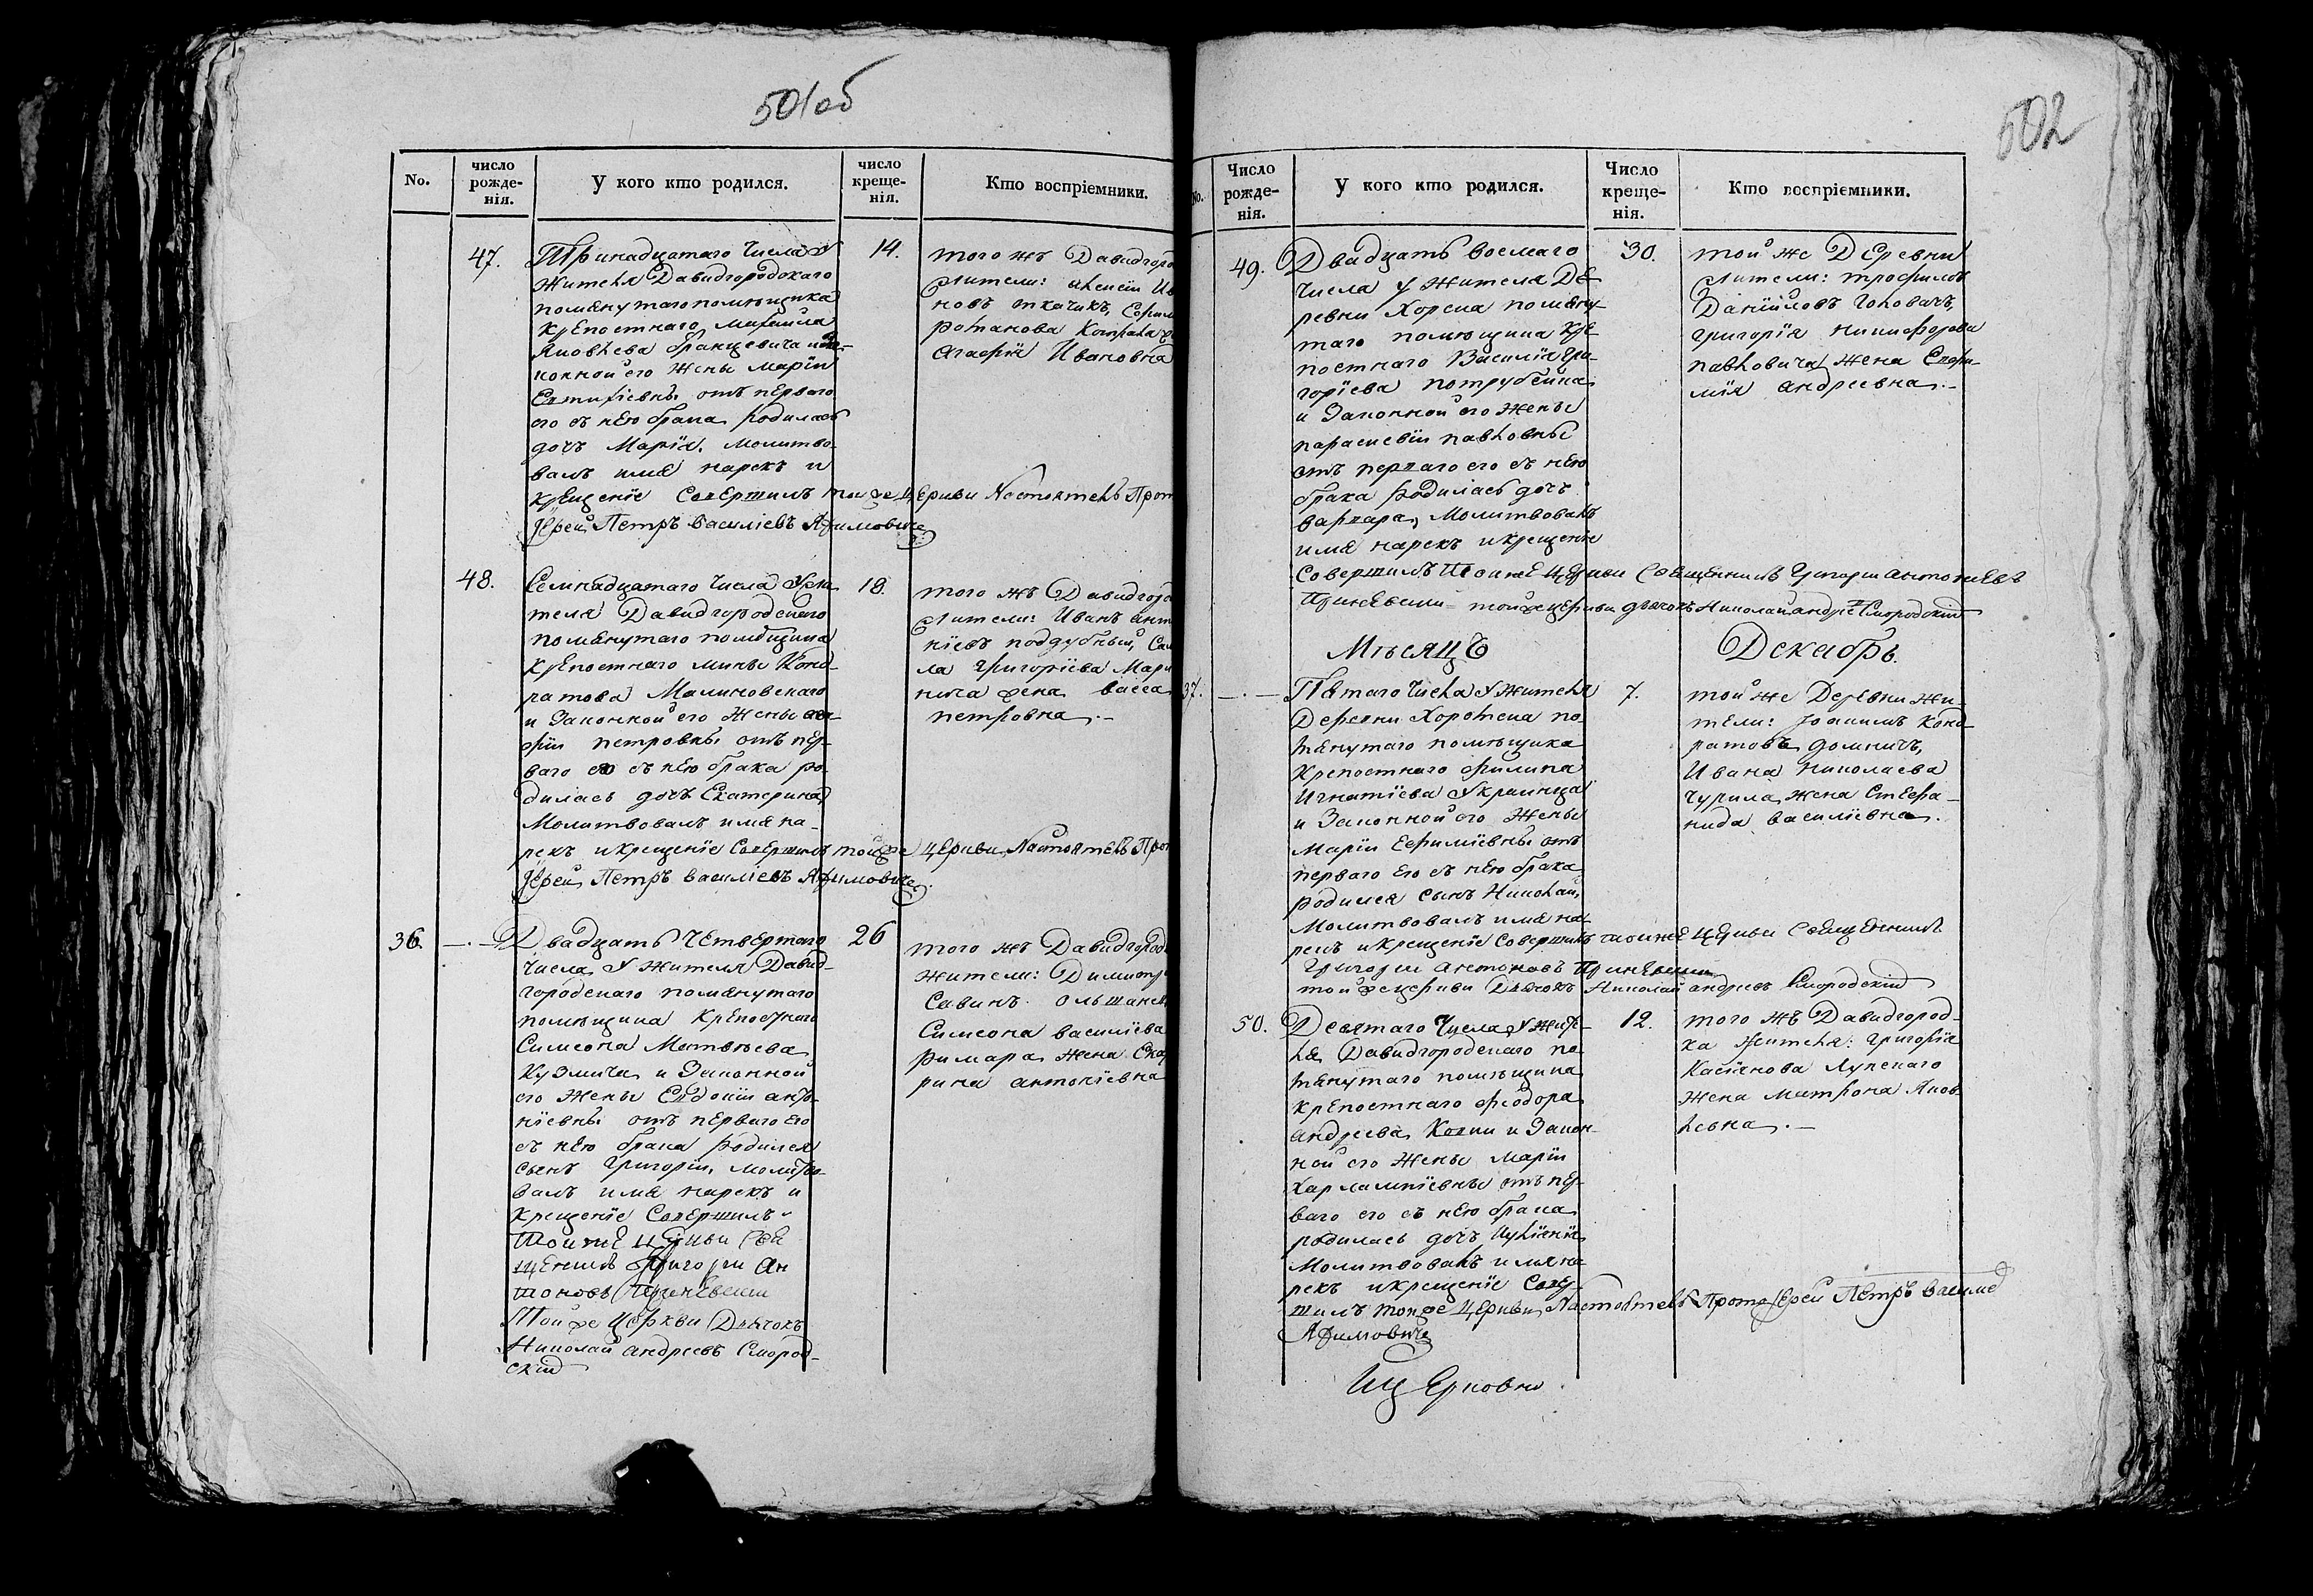 501об
No.
число рожде-нія.
У кого кто родился.
число креще-нія.
Кто воспріемники.
47.
Тринадцатаго Числа У
жителя Давидгородскаго
помянутаго помѣщика
крепостнаго Михаила
Яковлева
конной его жены Маріи
Евтихіевны отъ перваго
его съ нею брака родилась
дочь Марія, молитво-
валъ имя нарекъ и
крещеніе Совершилъ тойже Церкви Настоятель Прот
Іерей Петръ Василіевъ
14.
того жъ Давидгоро
жители: Алексій Ив
новъ ткачикъ, Ефим
романова
Агафія Ивановна
48.
Семнадцатаго Числа У жи-
теля Давидгородскаго
помянутаго помѣщика
крепостнаго Мины Конд-
ратова Малиновскаго
и Законной его Жены
фіи петровны отъ пер-
ваго его съ нею брака ро-
дилась дочь Екатерина,
Молитвовалъ имя на-
рекъ и крещеніе Совершилъ тойже Церкви Настоятель Прот
Іерей Петръ Василіевъ
18.
того жъ Давидгоро
жители: Иванъ Ант
ніевъ поддубный,
ла Григоріева Мари
нича жена васса
петровна.
36.
Двадцать Четвертаго
Числа У Жителя Давид-
городскаго помянутаго
помѣщика крепостнаго
Симеона Матвѣева
Кузмича и Законной
его Жены Евдокіи анто-
ніевны отъ перваго его
съ нею брака родился
сынъ Григорій, молитво-
валъ имя нарекъ и
Крещеніе Совершилъ
Тойже Церкви Свя
щенникъ Григорій Ан
тоновъ
Тойже Церкви Дьячокъ
Николай андреевъ Смород-
скій
26
того жъ Давидгород
жители: Димитр
Савинъ ольшанск
Симеона василіева
римара жена Екат
рина антоніевна
502
No.
Число рожде-нія.
У кого кто родился.
Число креще-нія.
Кто воспріемники.
49.
Двадцать восмаго
Числа У жителя Де-
ревни Хорска помяну-
таго помѣщика кре-
постнаго Василія Гри-
горіева потрубейка
и Законной его жены
параскевіи павловны
отъ перваго его съ нею
брака родилась дочь
варвара, Молитвовалъ
имя нарекъ и крещеніе
Совершилъ Тойже Церкви Священникъ Григорій антоніевъ
тойже церкви дьячокъ Николай андре Смородскій
30.
той же Деревни
жители: трофимъ
Даніиловъ Головачъ,
Григорія никифорова
павловича жена Евфи-
мія андреевна.
Мѣсяцъ Декабрь.
37.
Пятаго Числа У жителя
Деревни Хоромска по-
мянутаго помѣщика
Крепостнаго филипа
Игнатіева Украинца
и Законной его Жены
Маріи Ефиміевны отъ
перваго Его съ нею брака
родился сынъ Николай,
Молитвовалъ имя на-
рекъ и крещеніе Совершилъ тойже Церкви Священникъ
Григорій антоновъ
той же церкви Дьячокъ Николай андреевъ Смородскій
7.
той же Деревни жи-
тели: Іоакимъ Конд-
ратовъ домничъ,
Ивана Николаева
Чурила жена Стефа-
нида василіевна.
50.
Девятаго Числа У жите-
ля Давидгородскаго по-
мянутаго помѣщика
крепостнаго феодора
андреева и Закон-
ной его Жены Маріи
Харлампіевны отъ пер-
ваго его съ нею брака
родилась дочь Іуліанія
Молитвовалъ имя на-
рекъ и крещеніе Совер-
шилъ тойже Церкви Настоятель Протоіерей Петръ Василіе
12.
того жъ Давидгород-
ка жителя: Григорія
Касіянова Лупскаго
жена Матрона Яков-
левна.